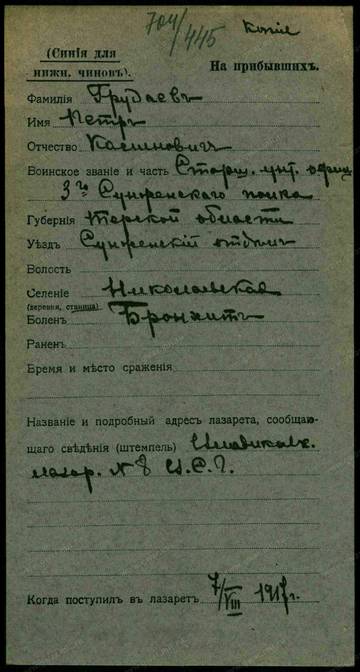 704/445 Копіе
(Синія для
нижн. чиновъ).
На прибывшихъ.
Фамилія Грудаевъ
Имя Петръ
Отчество Касьновичъ
Воинское званіе и часть Старш. унт. офиц
3го Сунженского полка
Губернія Терской области
Уѣздъ Сунженскій отдѣлъ
Волость
Селеніе Николаевская
(деревня, станица)
Боленъ Бронхитъ
Раненъ
Время и мѣсто сраженія
Названіе и подробный адресъ лазарета, сообщаю-
щаго свѣдѣнія (штемпель) Владикавк.
лазар. N 8
Когда поступилъ въ лазаретъ 7/VIII 1917 г.